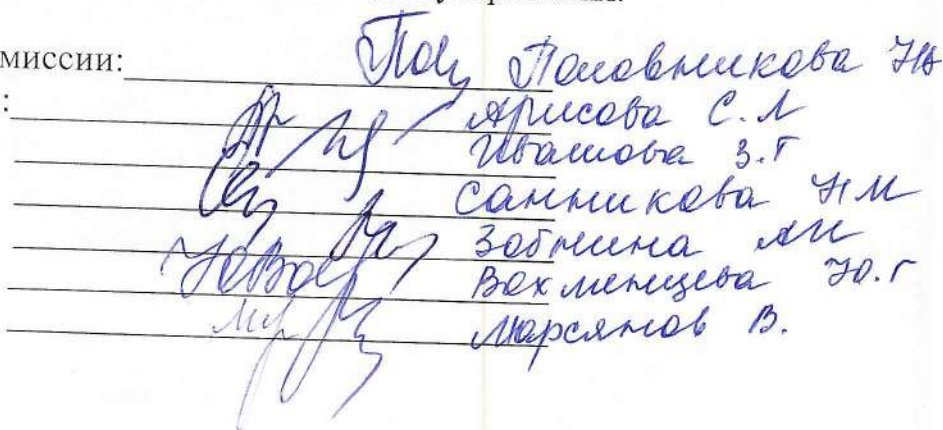 миссии: Половникова НВ
: Арисова С.Л
Ивашова З.Г
Санникова Н М
Зобнина АИ
Вахменцева Ю.Г
Марсянов В.